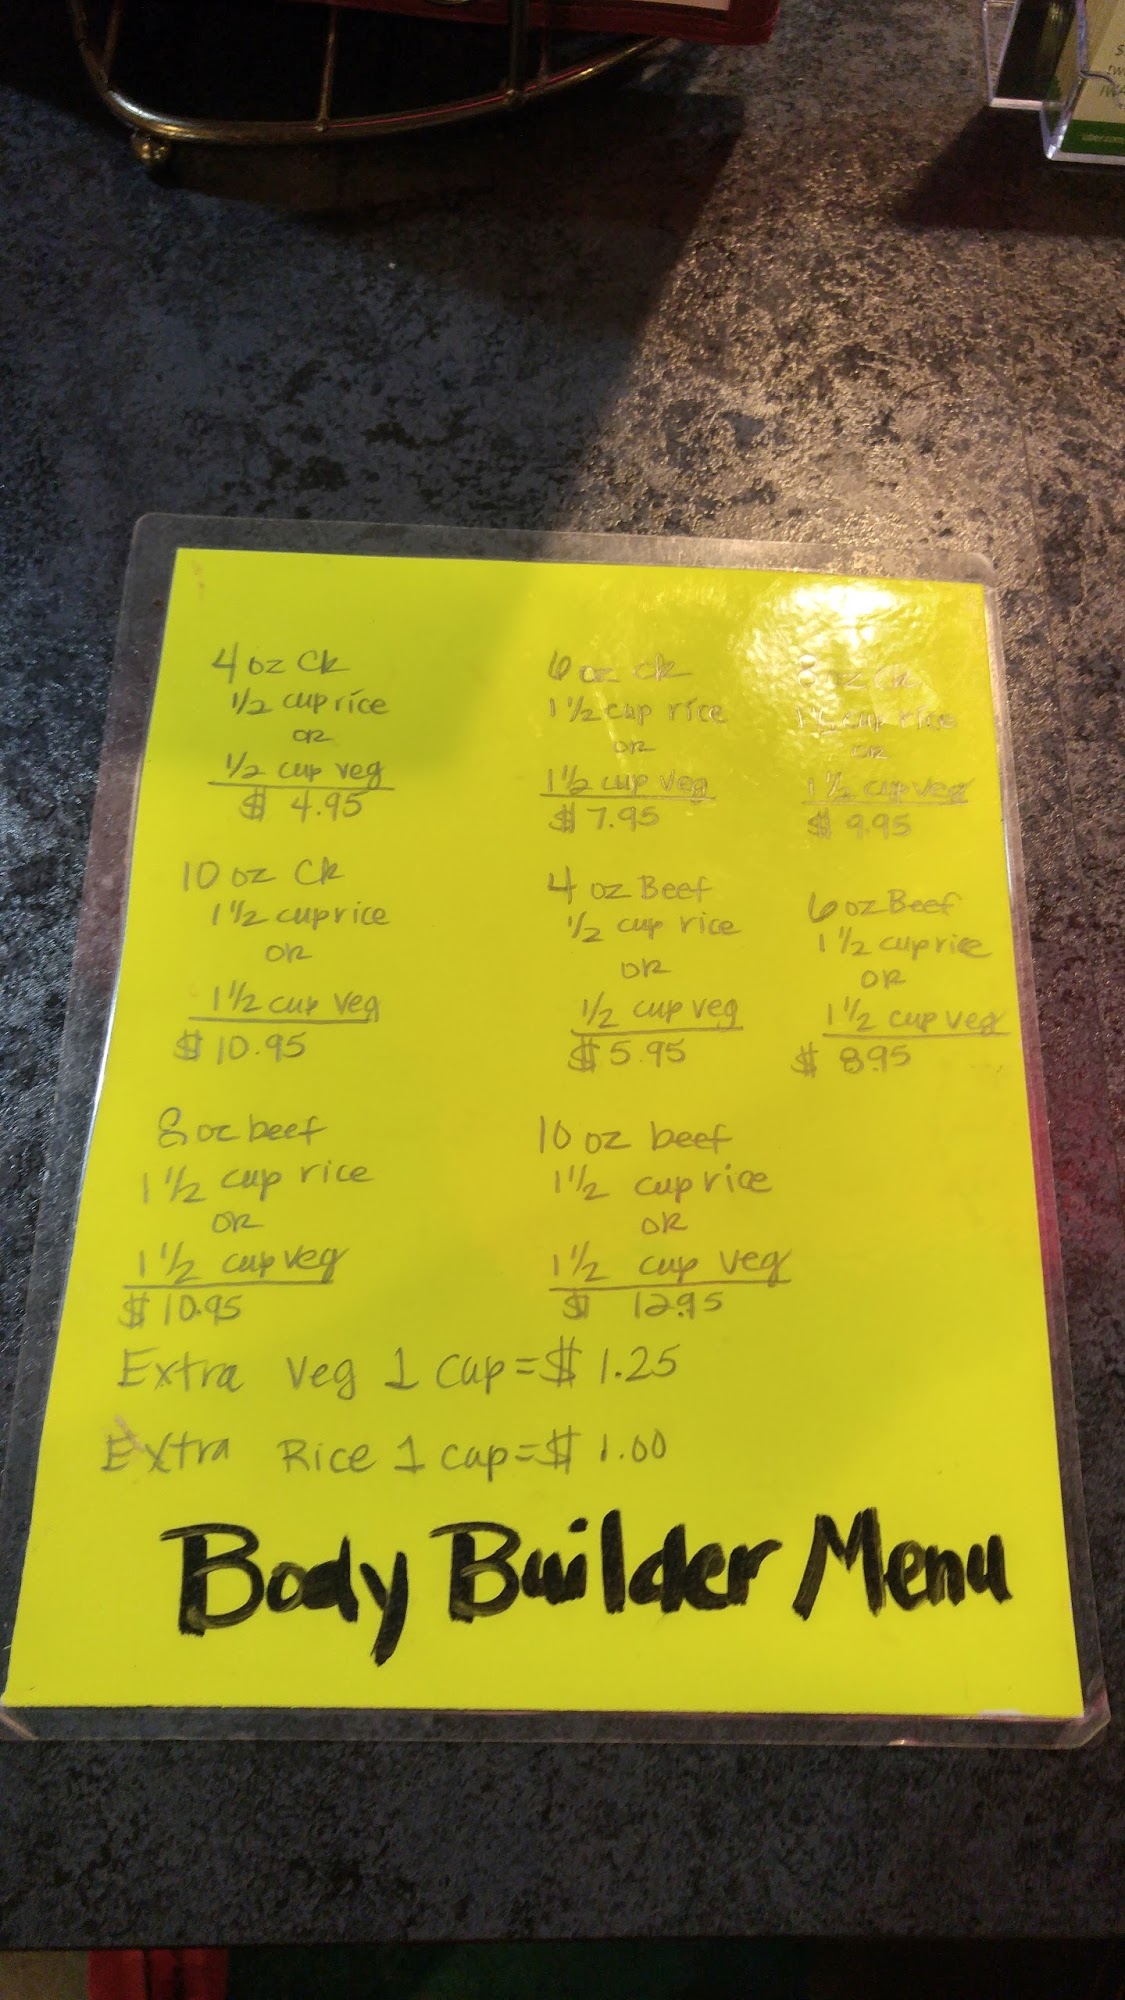 4 oz Ck
1/2 cup rice
OR
1/2 cup veg
$ 4.95
6 oz Ck
1 1/2 cup rice
OR
1 1/2 cup veg
$ 7.95
8 oz Ck
1 1/2 cup rice
OR
1 1/2 cup veg
$ 9.95
10 oz Ck
1 1/2 cup rice
OR
1 1/2 cup veg
$ 10.95
4 oz Beef
1/2 cup rice
OR
1/2 cup veg
$ 5.95
6 oz Beef
1 1/2 cup rice
OR
1 1/2 cup veg
$ 8.95
8 oz beef
1 1/2 cup rice
OR
1 1/2 cup veg
$ 10.95
10 oz beef
1 1/2 cup rice
OR
1 1/2 cup veg
$ 12.95
Extra veg 1 cup = $ 1.25
Extra Rice 1 cup = $ 1.00
Body Builder Menu